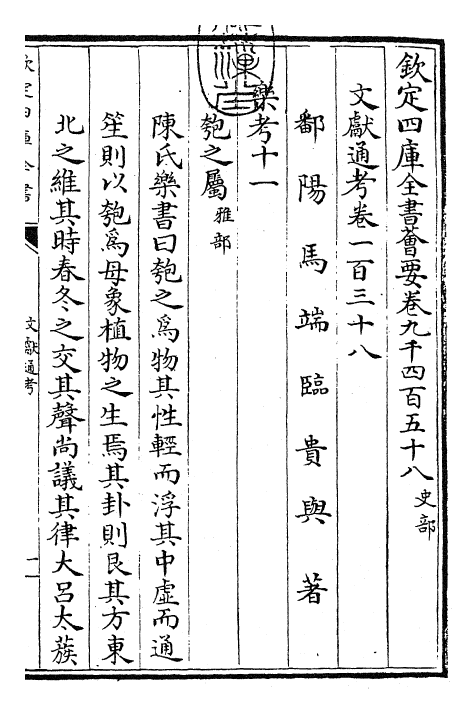 欽定四庫全書薈要卷九千四百五十八 史部
文獻通考卷一百三十八
鄱陽馬端臨貴與著
樂考十一
匏之屬 雅部
陳氏樂書曰匏之為物其性輕而浮其中虛而通
笙則以匏為母象植物之生焉其卦則艮其方東
北之維其時春冬之交其聲尚議其律大呂太蔟
欽定四庫全書
文獻通考
一